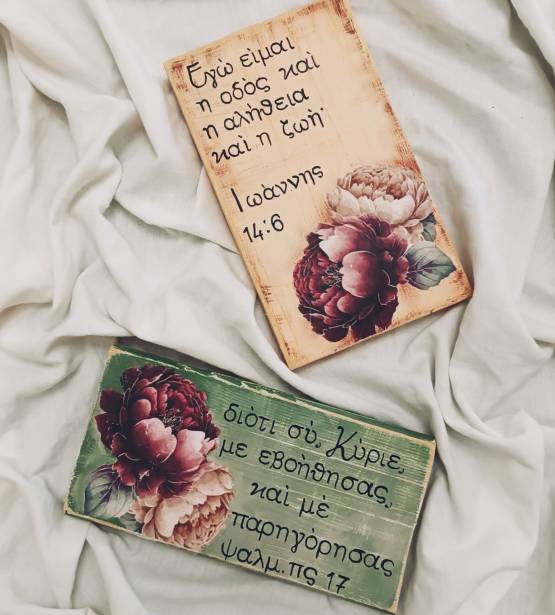 Εγὼ εἰμαι
η οδὸς καὶ
η αλήθεια
καὶ η ζωὴ·
Ιωάννης
14:6
διότι σύ, Κύριε,
με εβοήθησας,
καὶ μὲ
παρηγόρησας
ψαλμ. πς 17